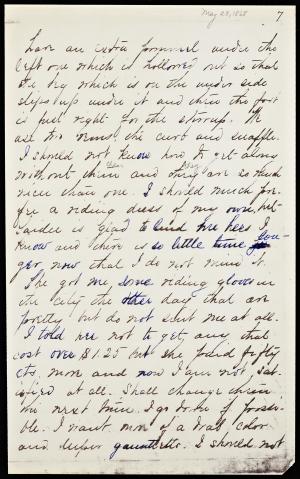 May 28, 1868
7
have an extra pommel under the
left one which is hollowed out so that
the leg which is on the under side
slips up under it and then the foot
is just right for the stirrup. We
use two reins the curb and snaffle.
I should not know how to get along
without them and they are so much
nicer than one. I should much pre-
fer a riding dress of my own, but
is glad to lend me hers I
know and there is so little time lon-
ger now that I do not mind it.
She got me some riding gloves in
the city the other day that are
pretty but do not suit me at all.
I told her not to get any that
cost over $1.25 but she paid fifty
cts. more and now I am not sat-
isfied at all. Shall change them
the next time I go to be if possi-
ble. I want more of a drab color
and deeper gauntlets. I should not